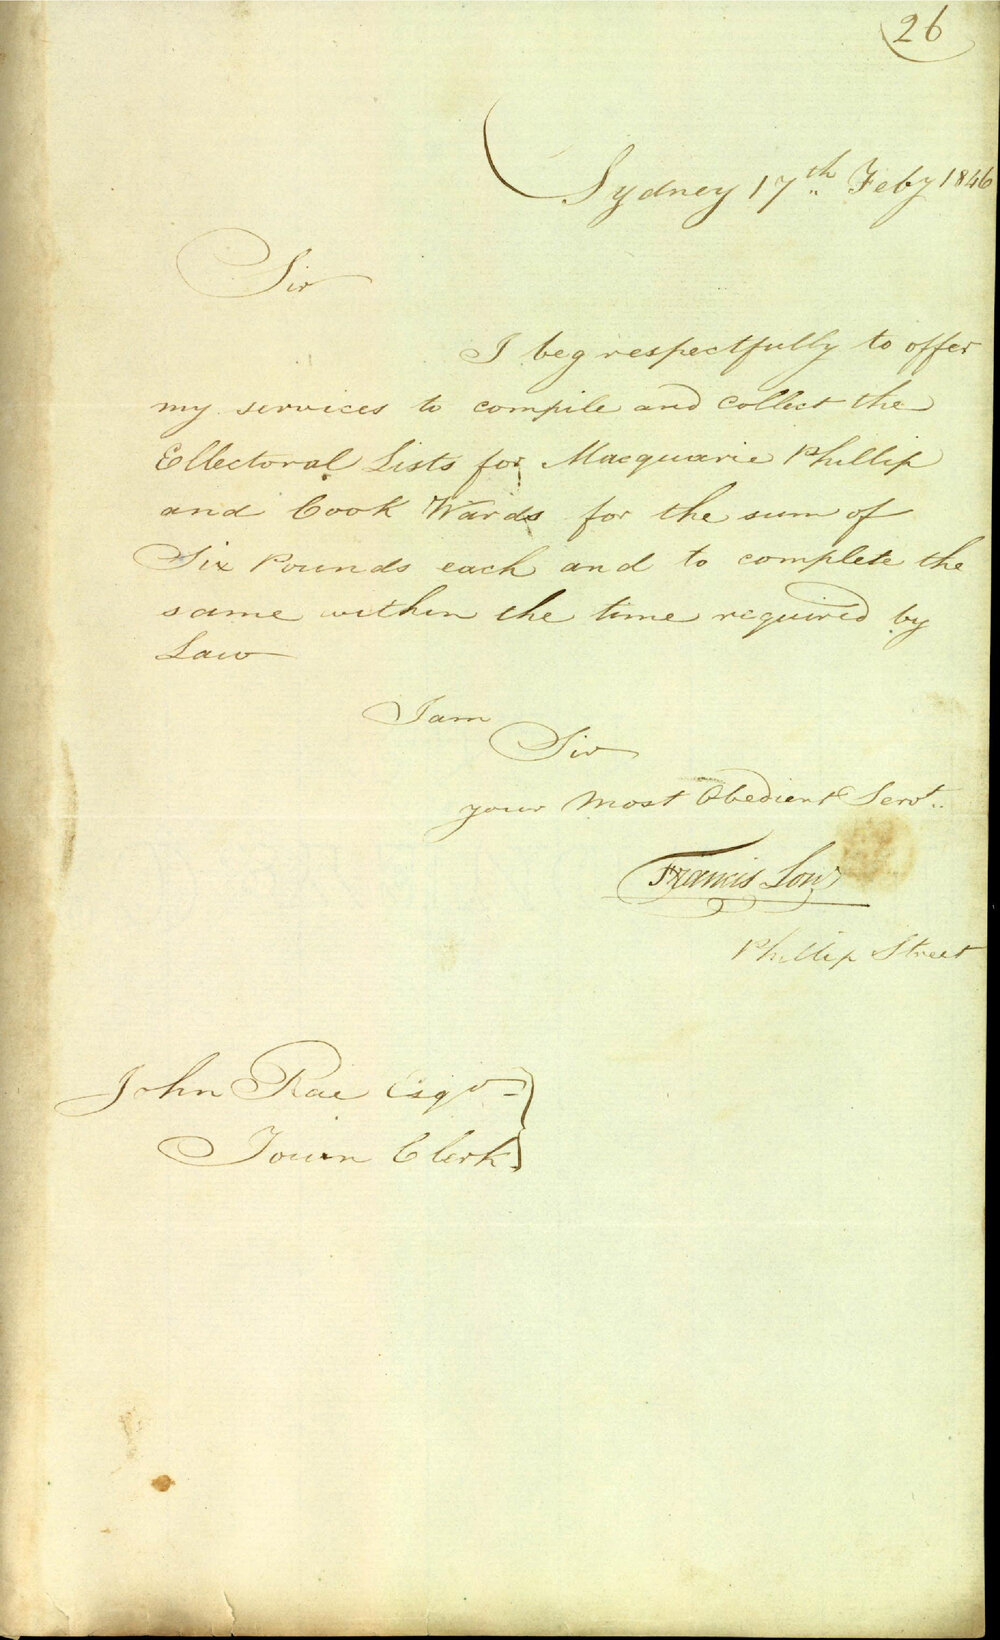 26
Sydney 17th Feby 1846
Sir
I beg respectfully to offer
my services to compile and collect the
Ellectoral Lists for Macquarie Phillip
and Cook Wards for the sum of
Six Pounds each and to complete the
same within the time required by
Law
I am
Sir
your Most Obedient Servt.
Francis Low
Phillip Street
John Rae Esqr
Town Clerk